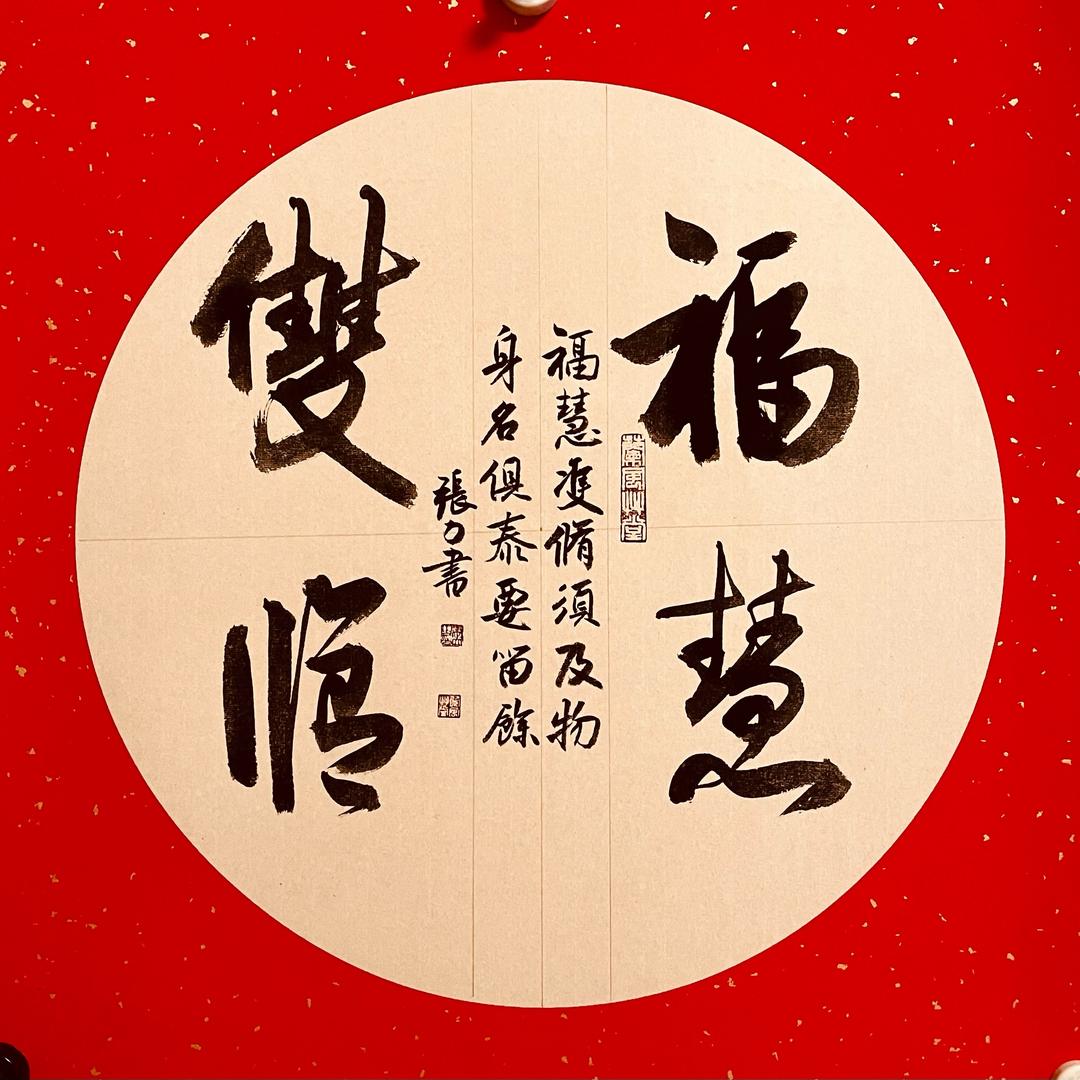 福慧
雙临
福慧雙脩須及物
身名俱泰要留餘
張力書